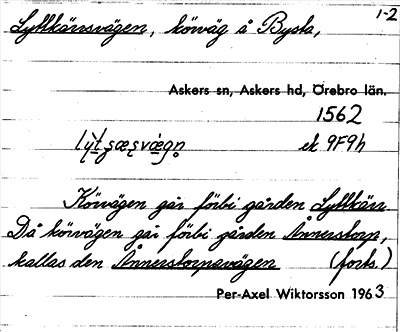 1-2
Lyttkärrsvägen, körväg å Bysta,
Askers sn, Askers hd, Örebro län.
1562
ek 9F9h
Körvägen går förbi gården Lyttkärr.
Då körvägen går förbi gården Ånnerstorp,
kallas den Ånnerstorpsvägen (forts.)
Per-Axel Wiktorsson 1963